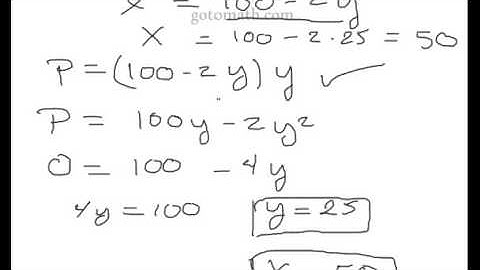 X = 100 - 2y
gotomath.com
X = 100 - 2·25 = 50
P = (100 - 2y) y ✓
P = 100y - 2y²
0 = 100 - 4y
4y = 100 y = 25
X = 50